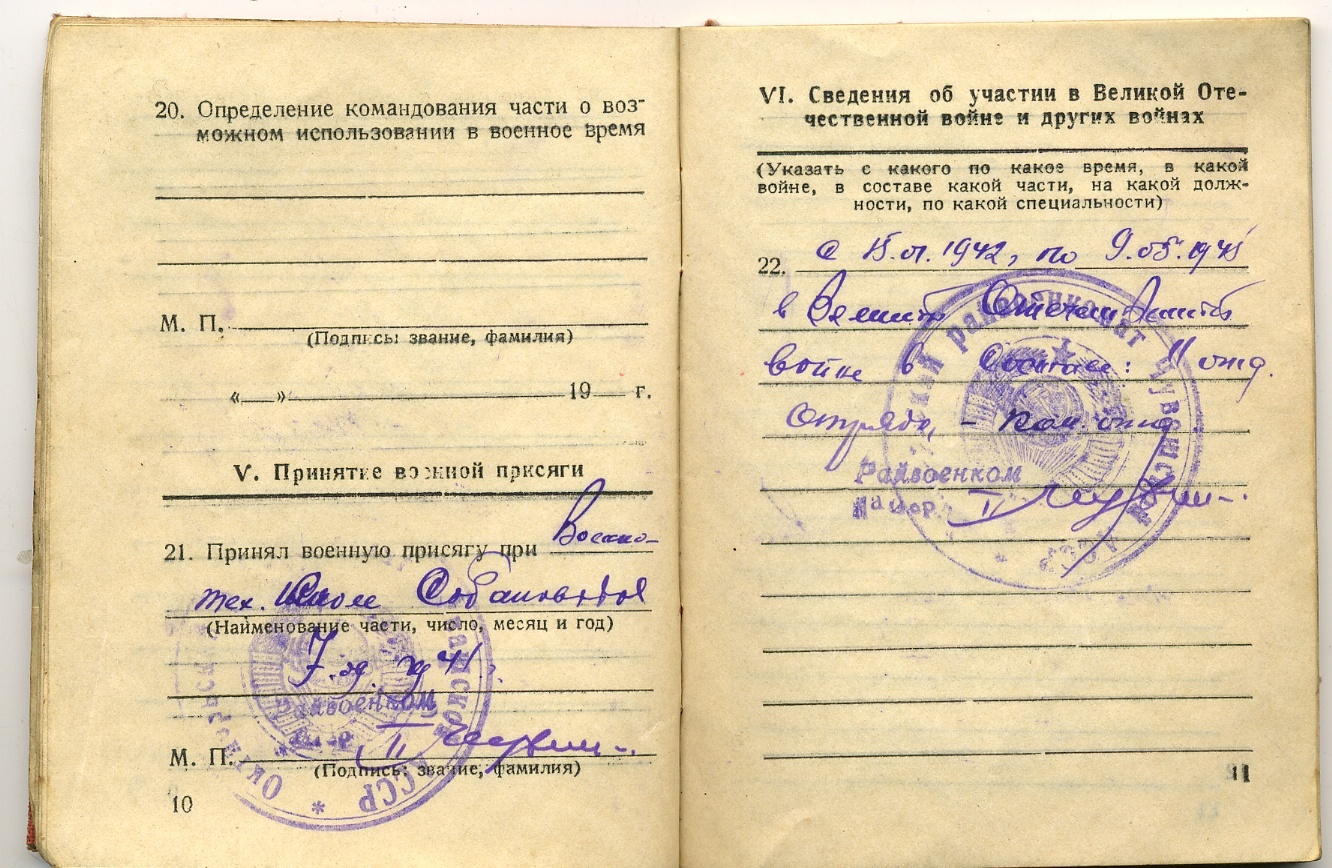 20. Определение командования части о воз-
можном использовании в военное время
М. П.
(Подпись, звание, фамилия)
«__»__ 19__ г.
V. Принятие военной присяги
21. Принял военную присягу при Военно-
тех. школе
(Наименование части, число, месяц и год)
41
Райвоенком
М. П.
(Подпись, звание, фамилия)
Октябрьский
АССР
10
VI. Сведения об участии в Великой Оте-
чественной войне и других войнах
(Указать с какого по какое время, в какой
войне, в составе какой части, на какой долж-
ности, по какой специальности)
22. с 15.01.1942, по 9.05.1945
в Великой Отечественной
войне в составе: 11 отд.
отряда, – ком. отд
Райвоенком
Майор
райвоенкомат Чувашской АССР
11